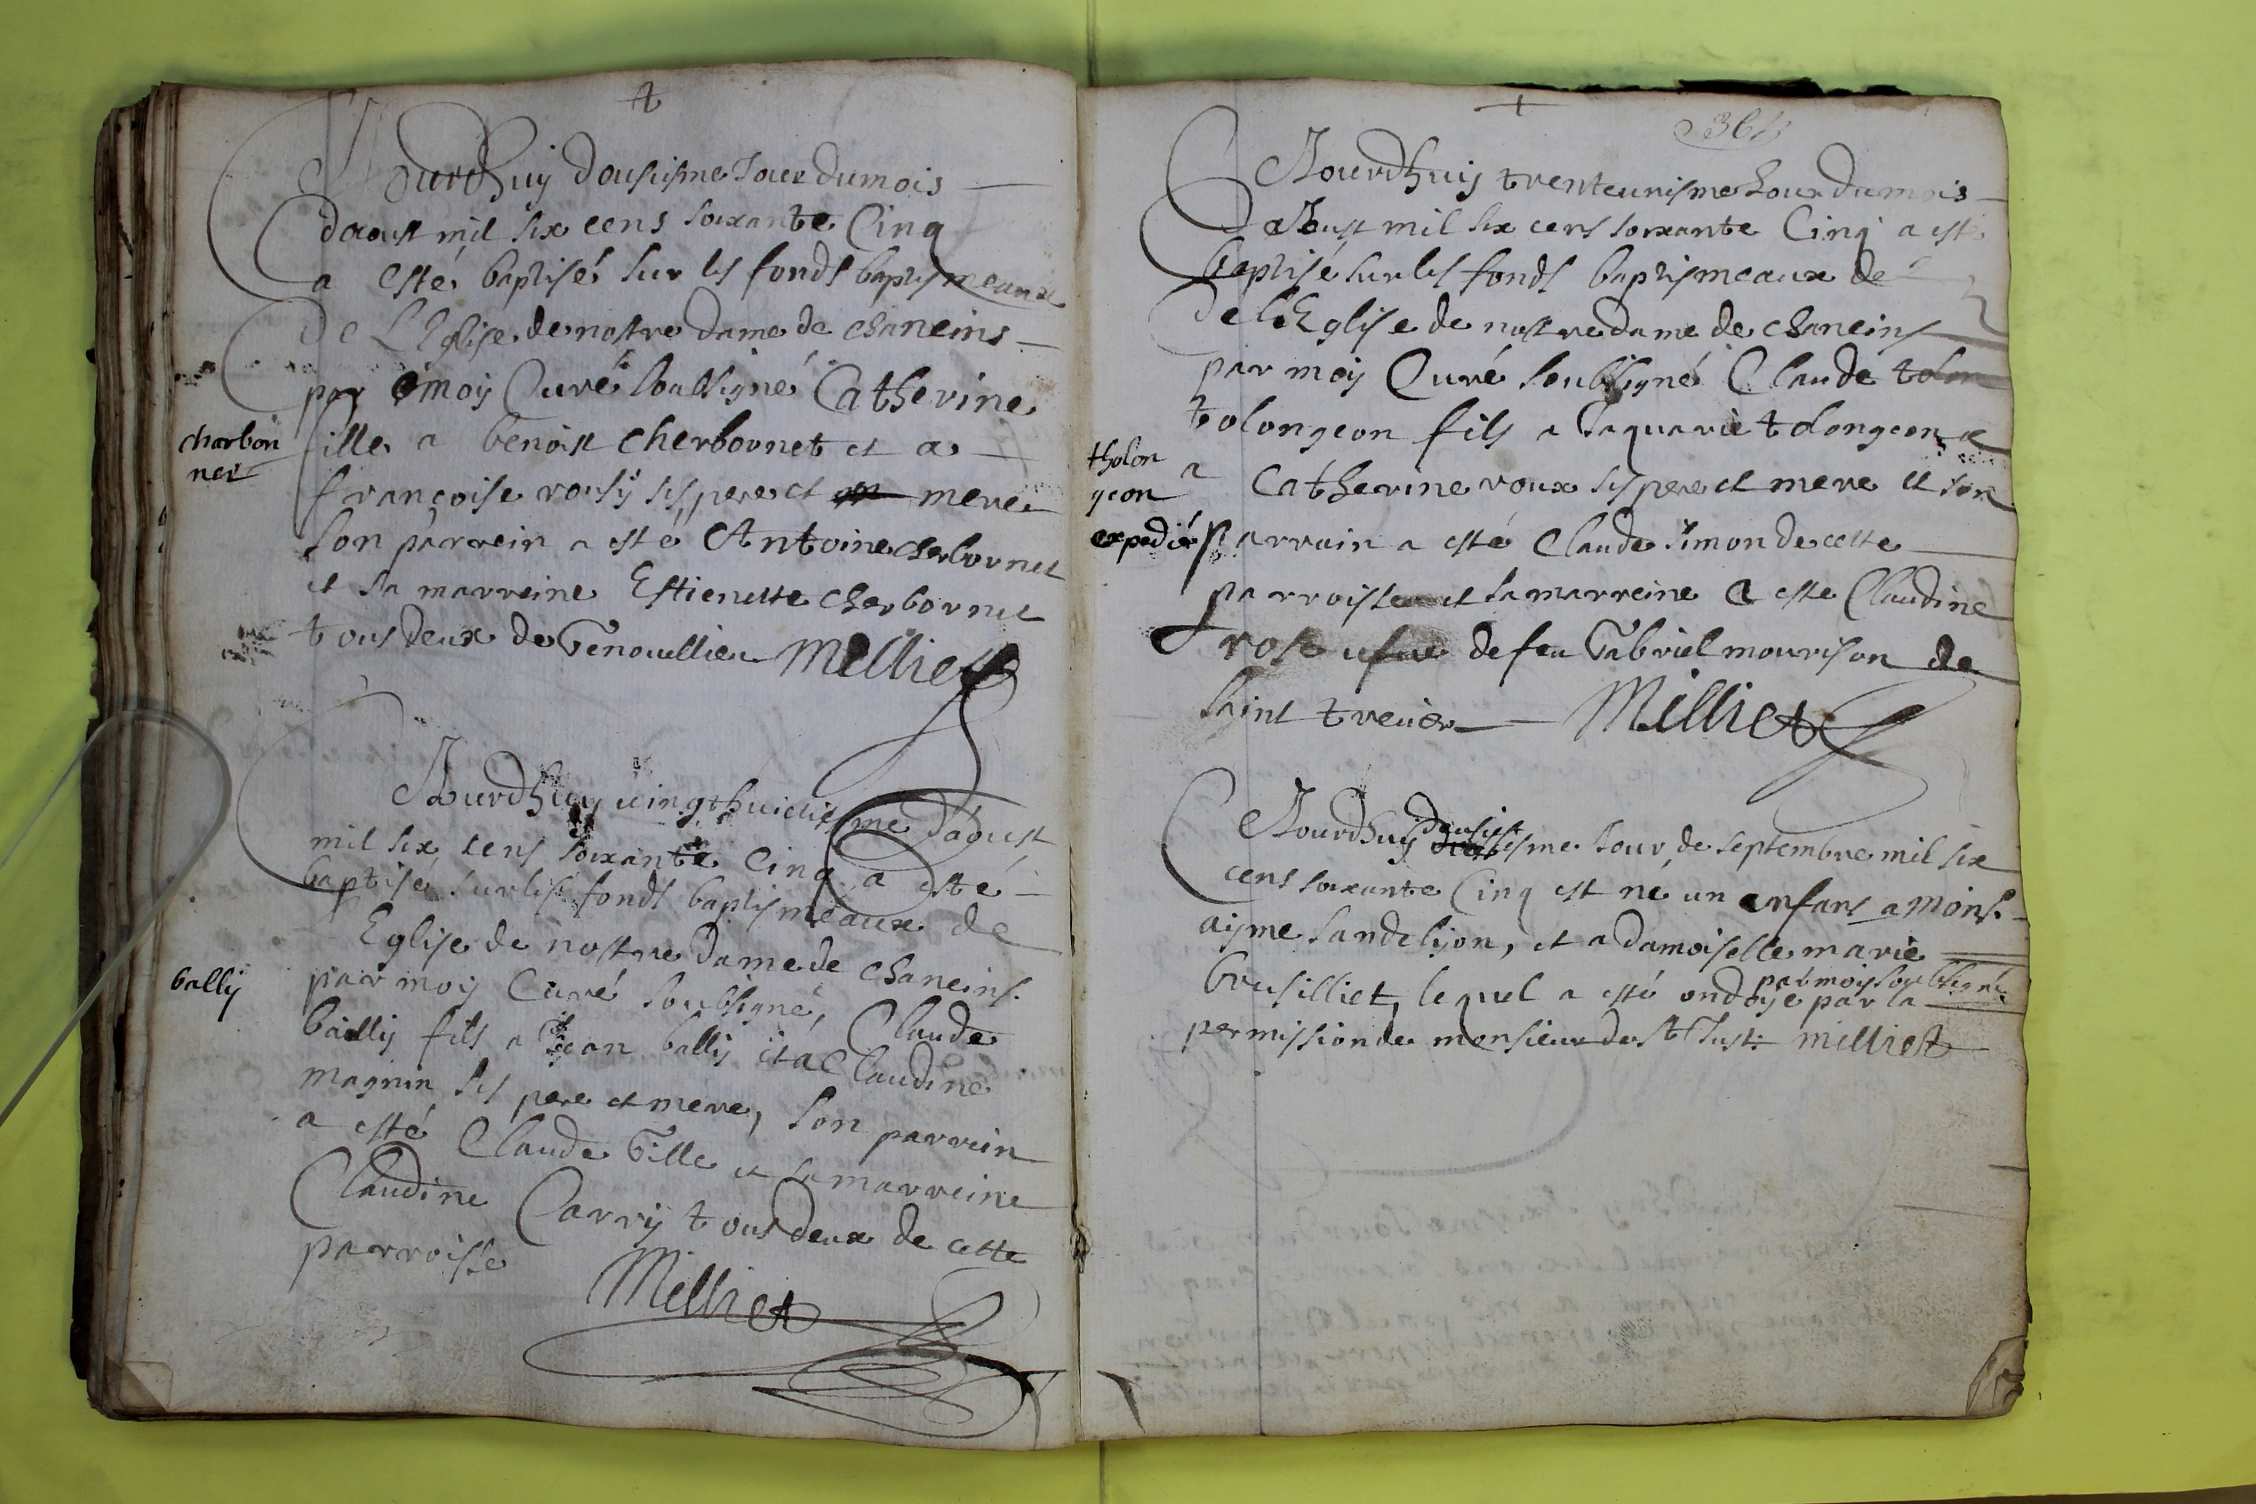 Jourdhuy dousiesme Jour du mois
daoust mil six cens soixante Cinq
a esté baptisé sur les fonds baptismeaux
De L'Eglise de nostre Dame de Chaneins
par moy Curé soubsigné Catherine
charbon
ner
fille a benoist cherbonnet et a
françoise rousy ses pere et mere
son parrein a esté Antoine cherbonnet
et sa marreine Estienette cherbonnet
tous deux de Genoullieu Milliet
Jourdhuy uingthuictiesme d'aoust
mil six cens soixante Cinq a esté
baptisé sur les fonds baptismeaux de
Eglise de nostre Dame de Chaneins
bally
par moy Curé soubsigné, Claude
bailly fils a Jean bally et a Claudine
magnin ses pere et mere, son parrein
a esté Claude Gille et sa marreine
Claudine Carry tous deux de cette
parroisse
Milliet
Jourdhuy trenteunisme Jour du mois
d'aoust mil six cens soixante Cinq a esté
baptisé sur les fonds baptismeaux de
de l'Eglise de nostre dame de Chaneins
par moy Curé soubsigné Claude tolon
tolongeon fils a Jaquarie tolongeon et
tholon
geon
expedié
a Catherine roux ses pere et mere et son
parrain a esté Claude simon de cette
parroisse et sa marreine a esté Claudine
rose de feu Gabriel mourison de
saint treuier Milliet
Jourdhuy dousiesme Jour de septembre mil six
cens soixante Cinq est né un enfans a Mons.
aijme sandelijon, et a damoiselle marie
par moy soubsigné
brusilliet, lequel a esté ondoyé par la
permission de monsieur de St Just. Milliet